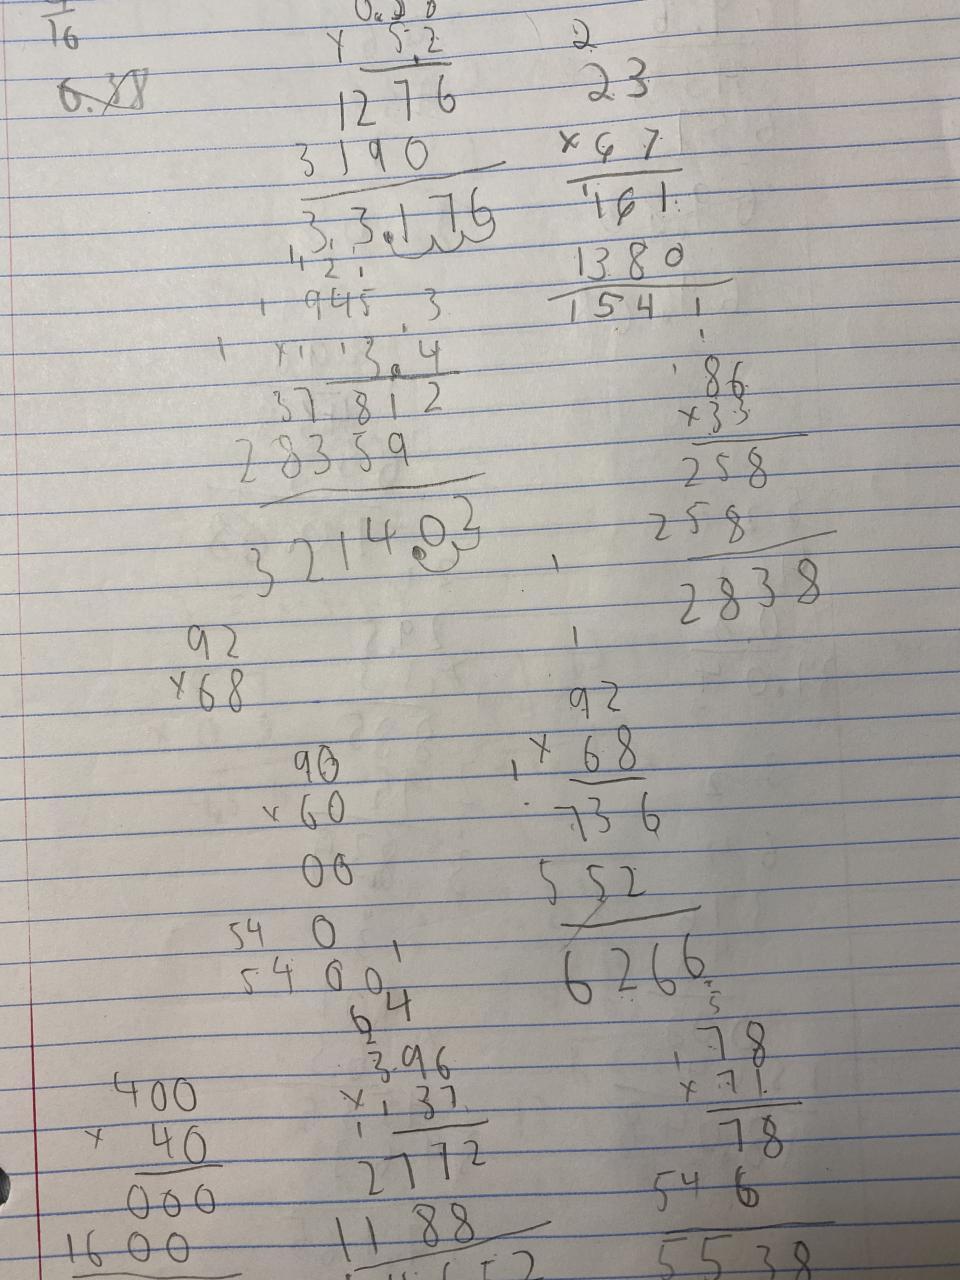 16
6.38
× 5.2
1276
3190
33.176
2
23
× 67
161
1380
1541
945.3
× 3.4
37812
28359
3214.02
86
×33
258
258
2838
92
×68
90
×60
00
540
5400
1
92
× 68
736
552
6266
400
× 40
000
1600
64
2
396
× 37
2772
1188
5
78
× 71
78
546
5538